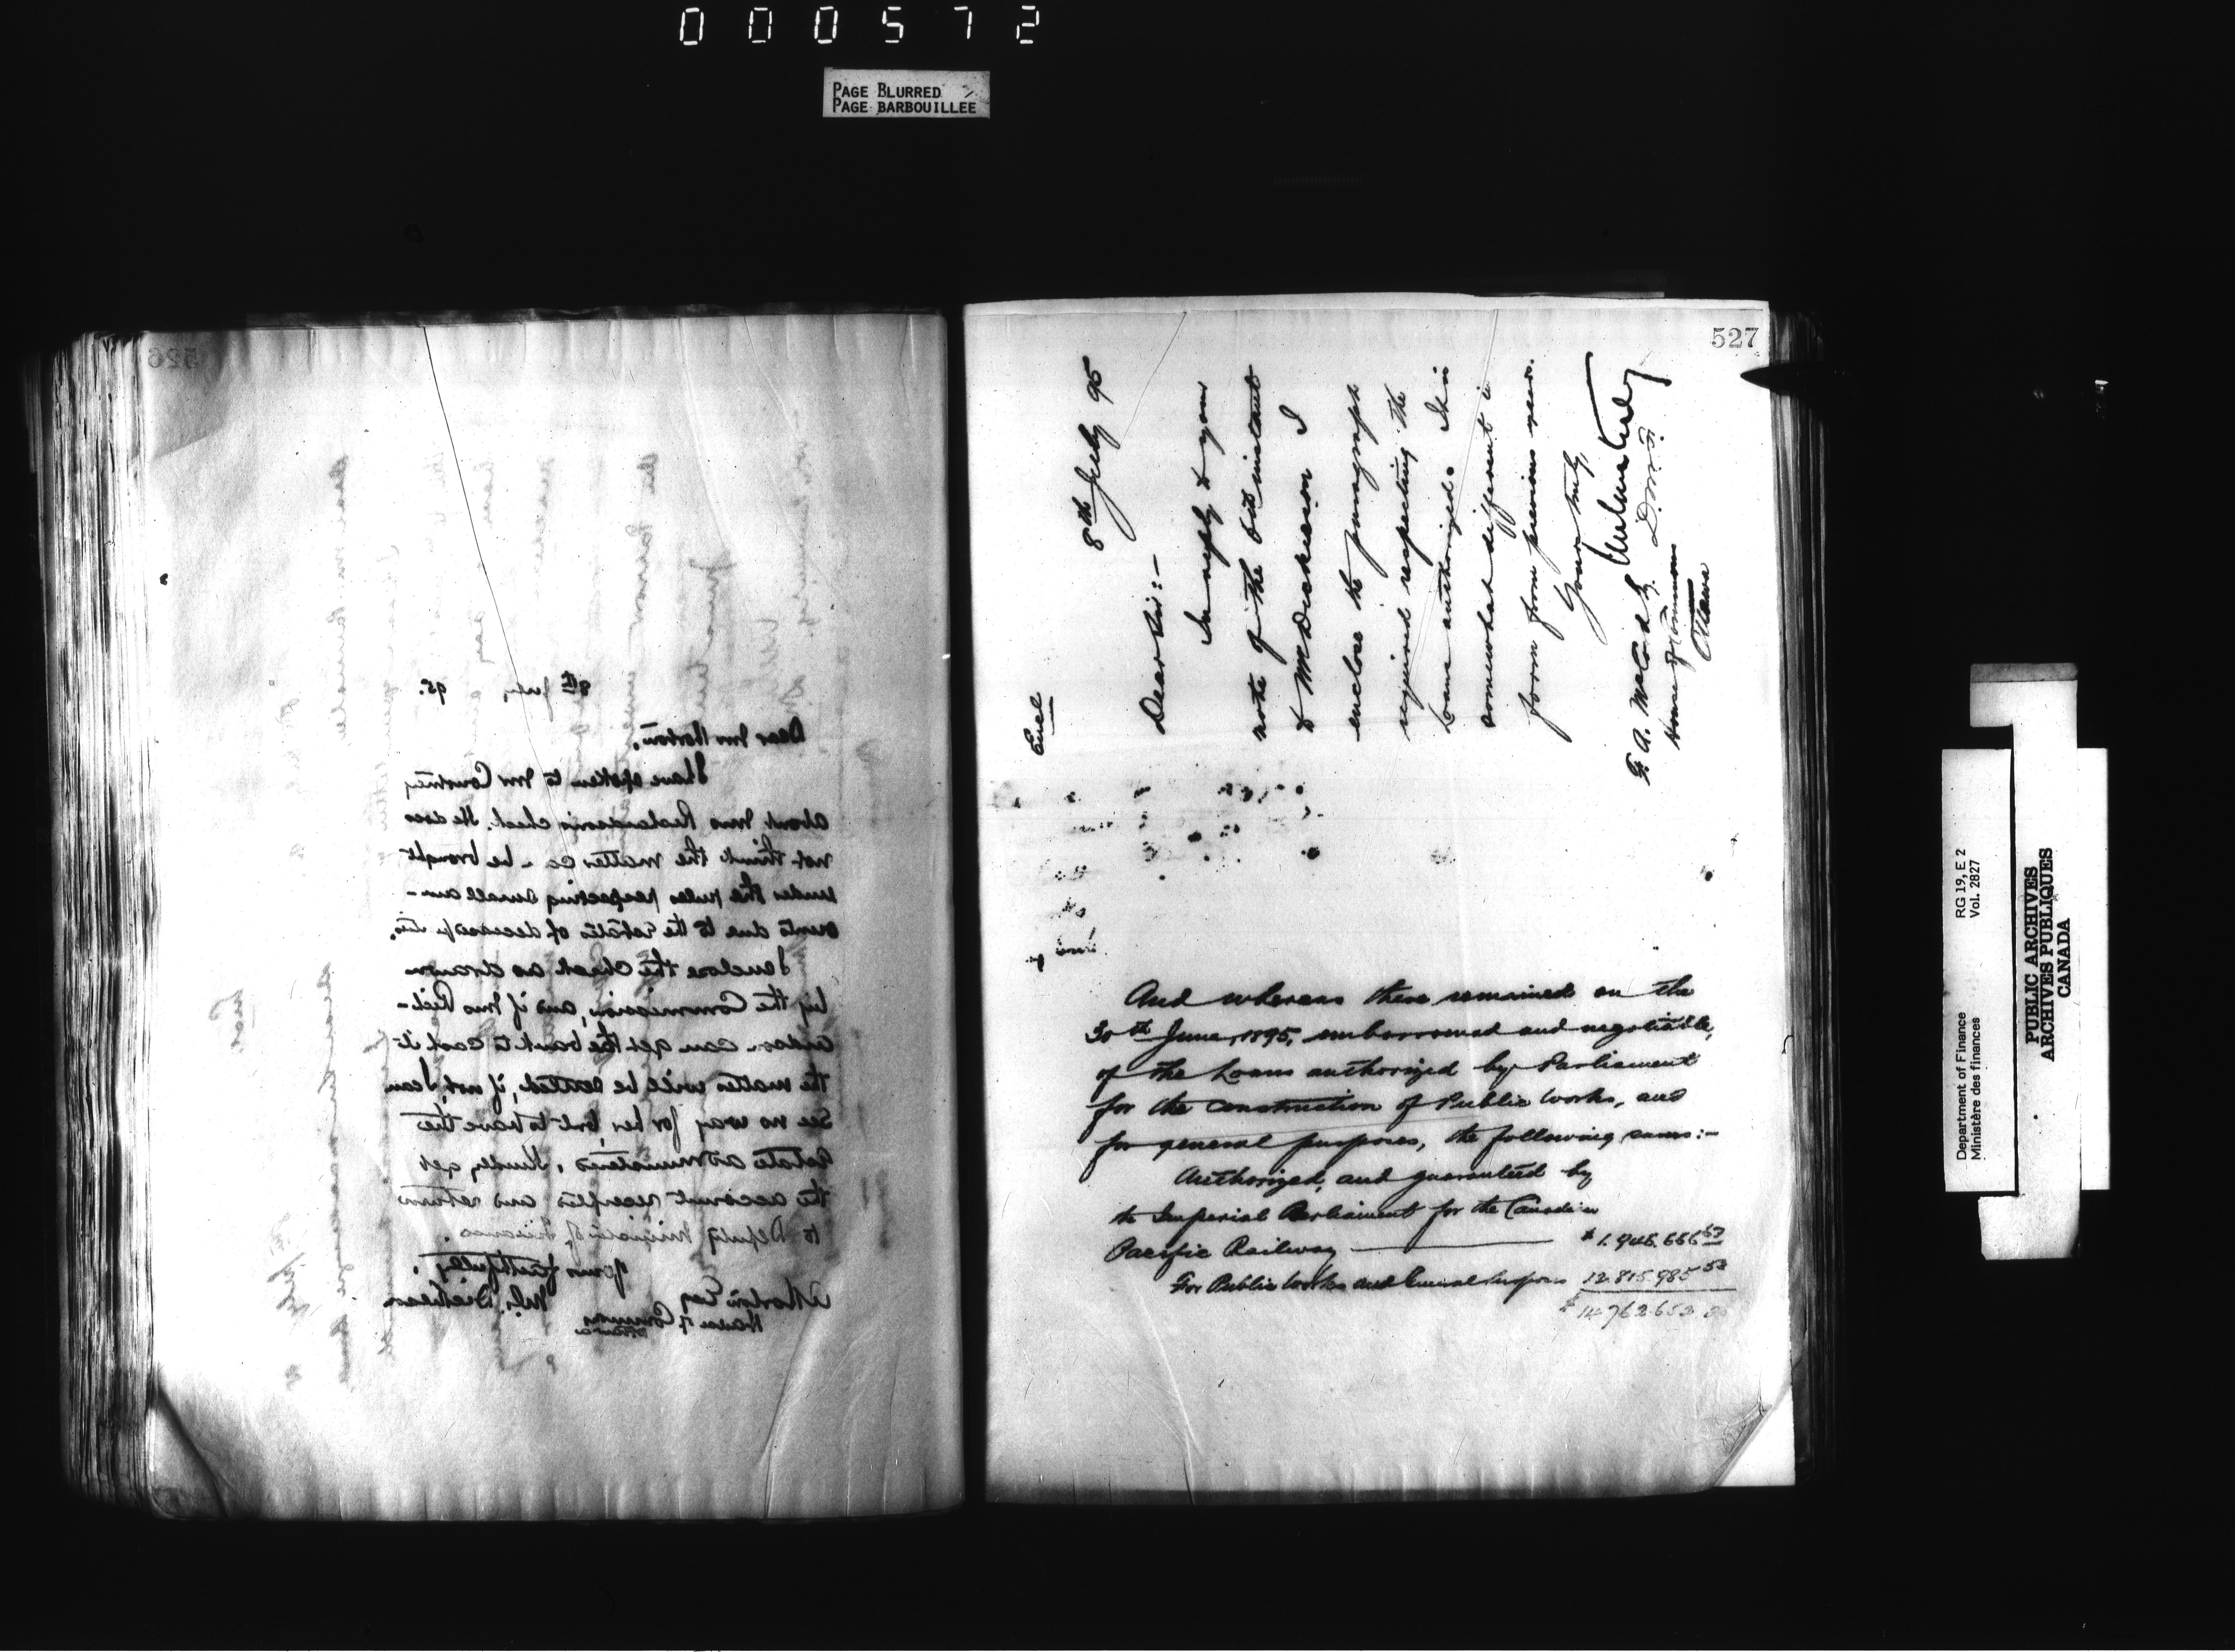 000572
PAGE BLURRED
PAGE BARBOUILLEE
526
8th July 95.
Dear Mr Horton,
I have spoken to Mr Courtney
about Mrs Richardson's check. He does
not think the matter can be brought
under the rules respecting small am-
ounts due to the estates of deceased
I enclose the check as drawn
by the Commission, and if Mrs Rich-
ardson can get the bank to cash it
the matter will be settled; if not, I can
see no way for her but to have the
estate administered. Kindly get
the account receipted and return
to Deputy Minister of Finance.
Yours faithfully,
Dickieson
Horton Esq
House of Commons
Ottawa
527
Encl
8th July 95
Dear Sir:-
In reply to your
note of the 6th instant
to Mr Dickieson I
enclose the paragraph
required respecting the
Loans authorized. It is
somewhat different in
form from previous years.
Yours truly,
D.M.F.
House of Commons
Ottawa
And whereas there remained on the
30th June, 1895, unborrowed and negotiable,
of the Loans authorized by Parliament
for the construction of Public Works, and
for general purposes, the following sums:-
Authorized, and guaranteed by
the Imperial Parliament for the Canadian
Pacific Railway — $1.946.666 67
For Public Works and General Purposes 12.815.985 53
$14.762.652.20
Department of Finance RG 19, E 2
Ministère des finances Vol. 2827
PUBLIC ARCHIVES
ARCHIVES PUBLIQUES
CANADA